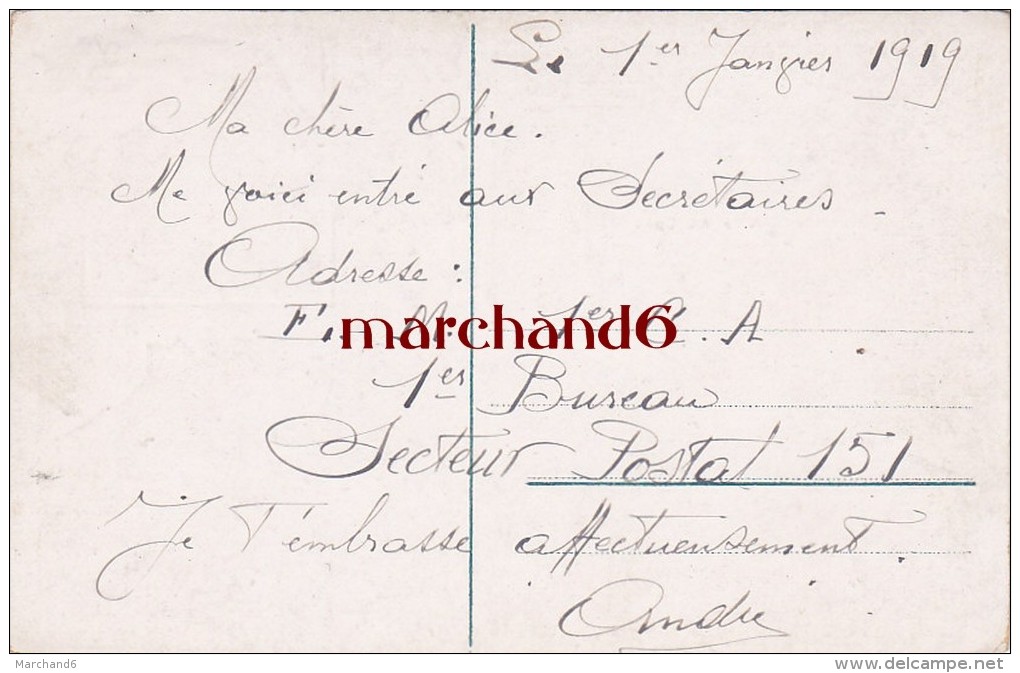 Le 1er Janvier 1919
Ma chère Alice.
Me voici entré aux Secrétaires.
Adresse :
E. M. 1er C. A
marchand6
1er Bureau
Secteur Postal 151
Je T'embrasse affectueusement.
André
Marchand6
www.delcampe.net